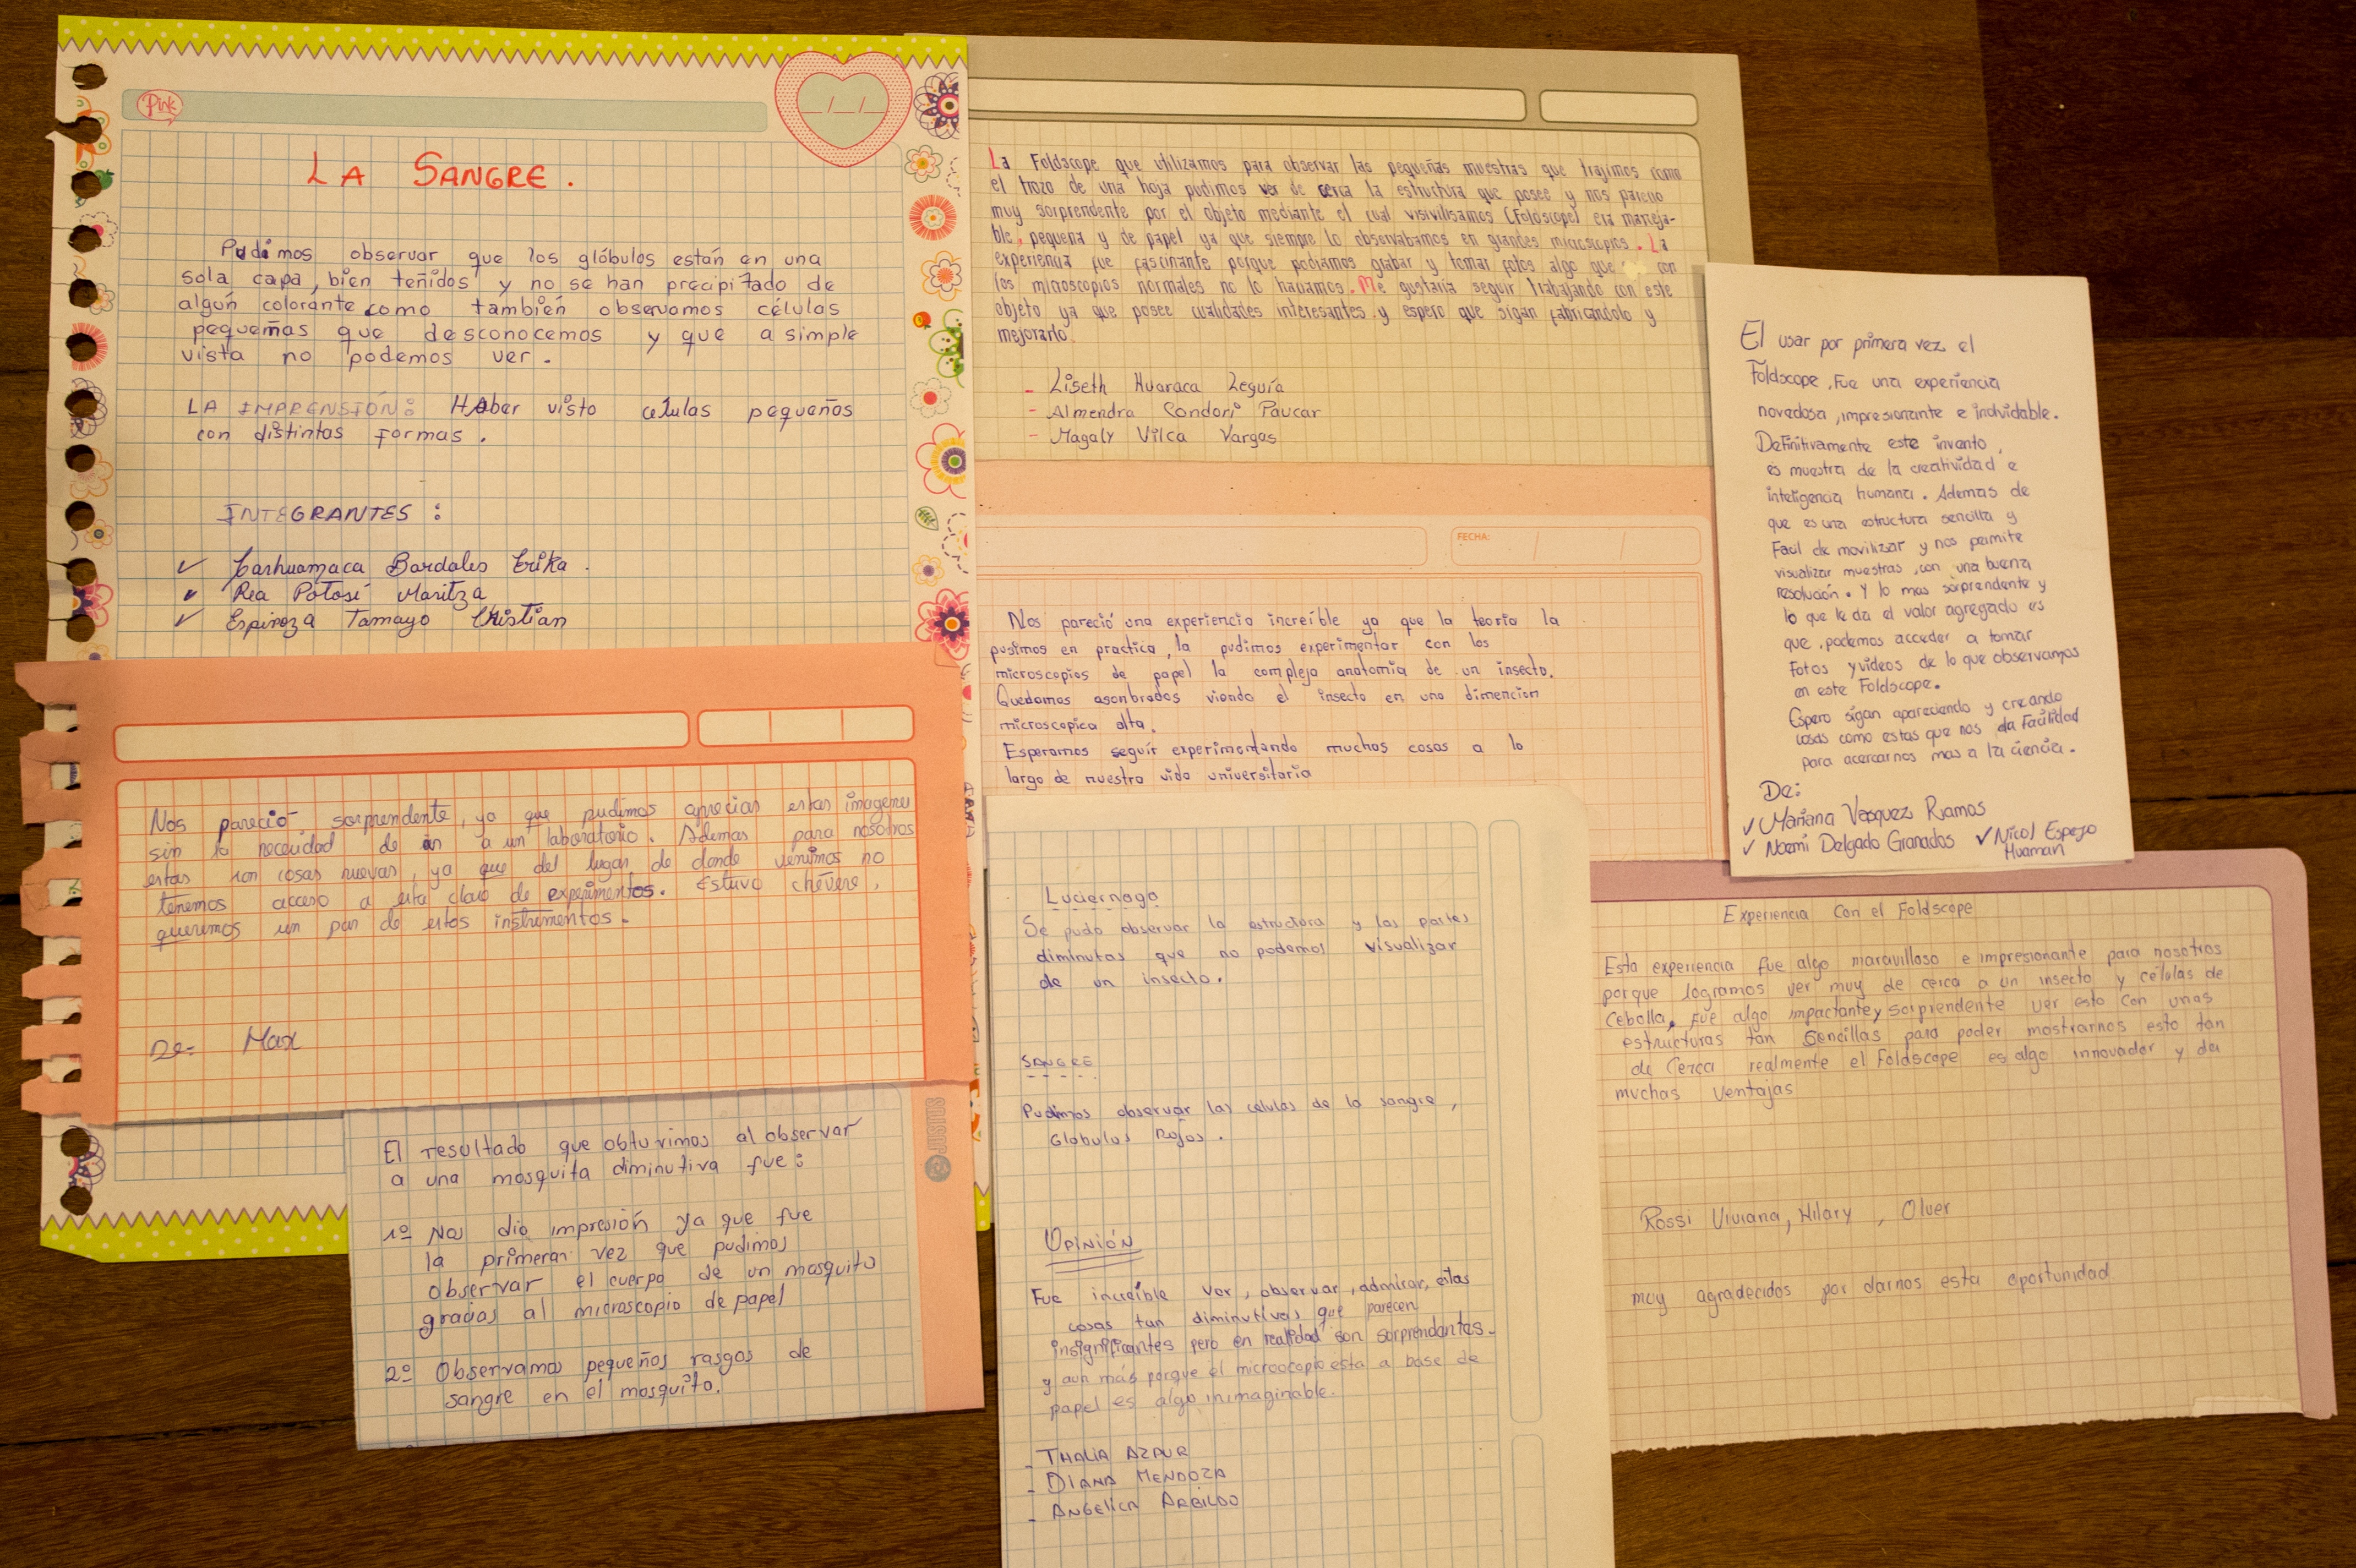 Pink
/ /
LA SANGRE.
Pudimos observar que los glóbulos están en una
sola capa, bien teñidos y no se han precipitado de
algún colorante como también observamos células
pequeñas que desconocemos y que a simple
vista no podemos ver.
LA IMPRENSIÓN: Haber visto celulas pequeñas
con distintas formas.
INTEGRANTES:
✓ Carhuamaca Bardales Erika.
✓ Rea Potosí Maritza
✓ Espinoza Tamayo Christian
La Foldscope que utilizamos para observar las pequeñas muestras que trajimos como
el trozo de una hoja pudimos ver de cerca la estructura que posee y nos pareció
muy sorprendente por el objeto mediante el cual visivilisamos (Foldscope) era maneja-
ble, pequeña y de papel ya que siempre lo observabamos en grandes microscopios. La
experiencia fue fascinante porque podiamos grabar y tomar fotos algo que con
los microscopios normales no lo haciamos. Me gustaría seguir trabajando con este
objeto ya que posee cualidades interesantes y espero que sigan fabricandolo y
mejorarlo.
- Liseth Huaraca Leguía
- Almendra Condori Paucar
- Magaly Vilca Vargas
El usar por primera vez el
Foldscope, Fue una experiencia
novedosa, impresionante e inolvidable.
Definitivamente este invento,
es muestra de la creatividad e
inteligencia humana. Ademas de
que es una estructura sencilla y
Facil de movilizar y nos permite
visualizar muestras, con una buena
resolución. Y lo mas sorprendente y
lo que le da el valor agregado es
que, podemos acceder a tomar
Fotos y videos de lo que observamos
en este Foldscope.
Espero sigan apareciendo y creando
cosas como estas que nos da Facilidad
para acercarnos mas a la ciencia.
De:
✓ Mariana Vasquez Ramos
✓ Noemi Delgado Granados ✓ Nicol Espejo
Huaman
FECHA: / /
Nos pareció una experiencia increíble ya que la teoria la
pusimos en practica, la pudimos experimentar con los
microscopios de papel la compleja anatomia de un insecto.
Quedamos asonbrados viendo el insecto en una dimencion
microscopica alta.
Esperamos seguir experimentando muchas cosas a lo
largo de nuestra vida universitaria
Nos pareció sorprendente, ya que pudimos apreciar estas imagenes
sin la necesidad de ir a un laboratorio. Ademas para nosotros
estas son cosas nuevas, ya que del lugar de donde venimos no
tenemos acceso a esta clase de experimentos. Estuvo chévere,
queremos un par de estos instrumentos.
De: Max
JUSTUS
El resultado que obtuvimos al observar
a una mosquita diminutiva fue:
1º Nos dio impresión ya que fue
la primera vez que pudimos
observar el cuerpo de un mosquito
gracias al microscopio de papel
2º Observamos pequeños rasgos de
sangre en el mosquito.
Luciernaga
Se pudo observar la estructura y las partes
diminutas que no podemos visualizar
de un insecto.
SANGRE
Pudimos observar las celulas de la sangre,
Globulos Rojos.
OPINIÓN
Fue increíble ver, observar, admirar, estas
cosas tan diminutivas que parecen
insignificantes pero en realidad son sorprendentes.
y aun más porque el microocopio esta a base de
papel es algo inimaginable.
- THALIA AZAUR
- DIANA MENDOZA
- ANGELICA ARBILDO
Experiencia Con el Foldscope
Esta experiencia fue algo maravilloso e impresionante para nosotros
porque logramos ver muy de cerca a un insecto y células de
Cebolla, Fue algo impactante y sorprendente ver esto con unas
estructuras tan sencillas para poder mostrarnos esto tan
de Cerca realmente el Foldscope es algo innovador y da
muchas ventajas
Rossi Viviana, Hilary, Oliver
muy agradecidos por darnos esta oportunidad